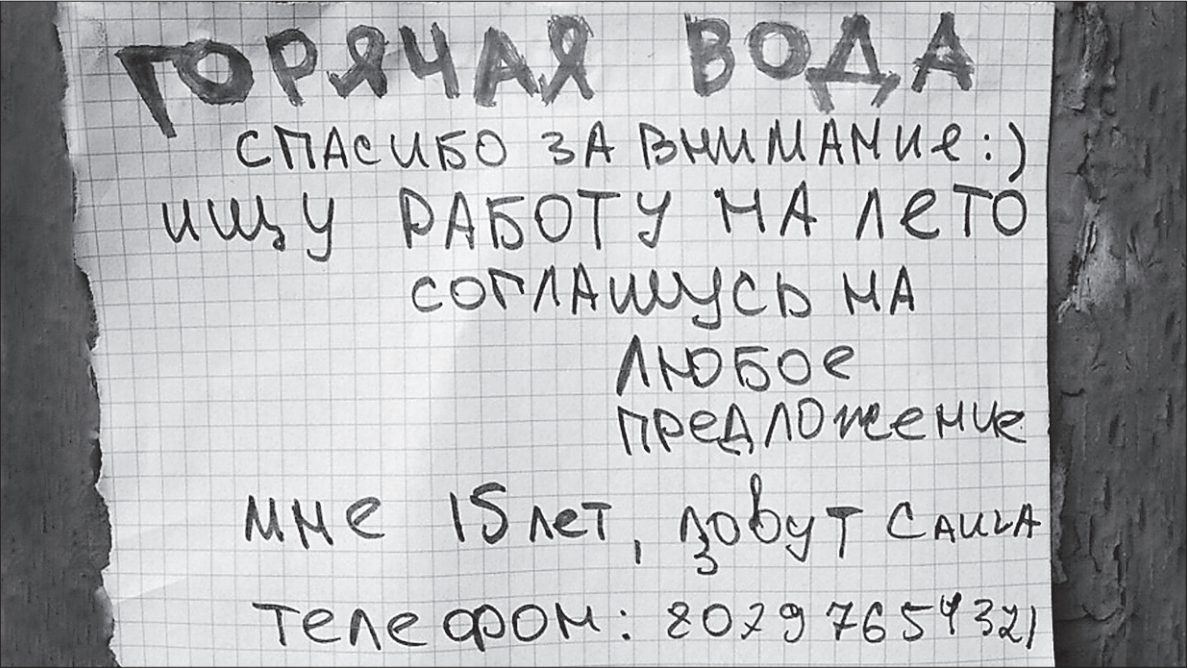 ГОРЯЧАЯ ВОДА
СПАСИБО ЗА ВНИМАНИе:)
ИЩУ РАБОТУ НА ЛеТО
СОГЛАШУСЬ НА
ЛЮБОе
ПРеДЛОЖеНИе
МНе 15 лет, зовут САША
Телефон: 80297654321